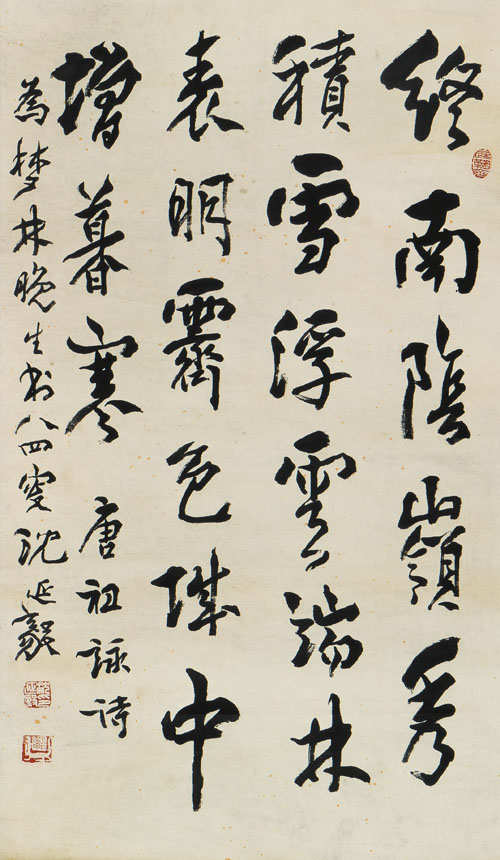 終南陰嶺秀
積雪浮雲端林
表明霽色城中
增暮寒 唐祖詠詩
為梦林晚生书八四叟沈延毅